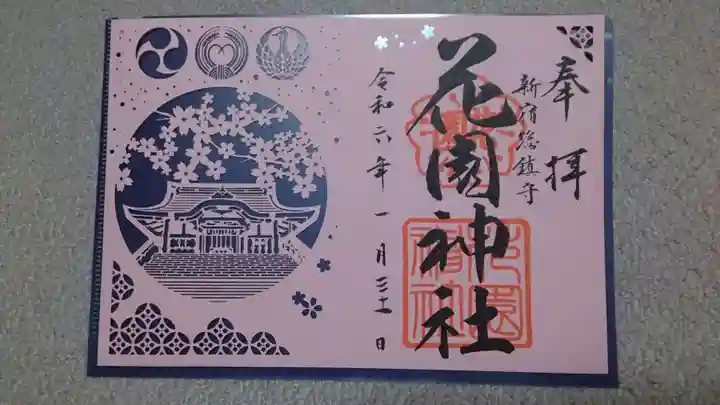 奉拝
新宿総鎮守
花園神社
花園
神社
令和六年一月三十一日